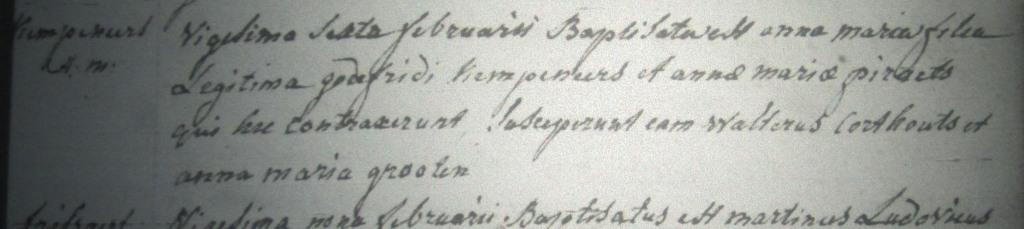 Kempeneers Vigesima sexta februarii Baptisata est anna maria filia
A: m: Legitima godefridi Kempeneers et annæ mariæ piraets
qui hic contraxerunt Susceperunt eam Walterus Corthouts et
anna maria grooten
Vigesima nona februarii Baptisatus est martinus Ludovicus